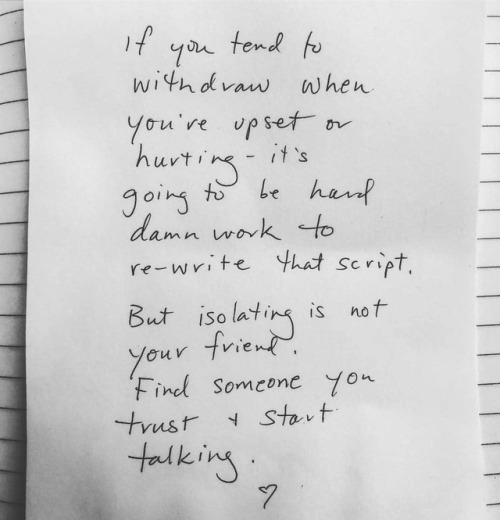 If you tend to
withdraw when
you're upset or
hurting - it's
going to be hard
damn work to
re-write that script.
But isolating is not
your friend.
Find someone you
trust + start
talking.
♡